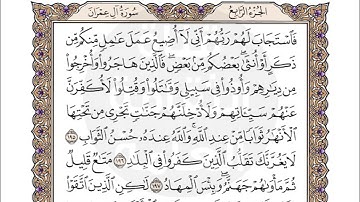 الجزء الرابع
سورة آل عمران
فَٱسْتَجَابَ لَهُمْ رَبُّهُمْ أَنِّي لَآ أُضِيعُ عَمَلَ عَٰمِلٍ مِّنكُم مِّن
ذَكَرٍ أَوْ أُنثَىٰ ۖ بَعْضُكُم مِّنۢ بَعْضٍ ۖ فَٱلَّذِينَ هَاجَرُوا۟ وَأُخْرِجُوا۟
مِن دِيَٰرِهِمْ وَأُوذُوا۟ فِي سَبِيلِي وَقَٰتَلُوا۟ وَقُتِلُوا۟ لَأُكَفِّرَنَّ
عَنْهُمْ سَيِّـَٔاتِهِمْ وَلَأُدْخِلَنَّهُمْ جَنَّٰتٍ تَجْرِي مِن تَحْتِهَا
ٱلْأَنْهَٰرُ ثَوَابًا مِّنْ عِندِ ٱللَّهِ ۗ وَٱللَّهُ عِندَهُۥ حُسْنُ ٱلثَّوَابِ ١٩٥
لَا يَغُرَّنَّكَ تَقَلُّبُ ٱلَّذِينَ كَفَرُوا۟ فِي ٱلْبِلَٰدِ ١٩٦ مَتَٰعٌ قَلِيلٌ
ثُمَّ مَأْوَىٰهُمْ جَهَنَّمُ ۚ وَبِئْسَ ٱلْمِهَادُ ١٩٧ لَٰكِنِ ٱلَّذِينَ ٱتَّقَوْا۟